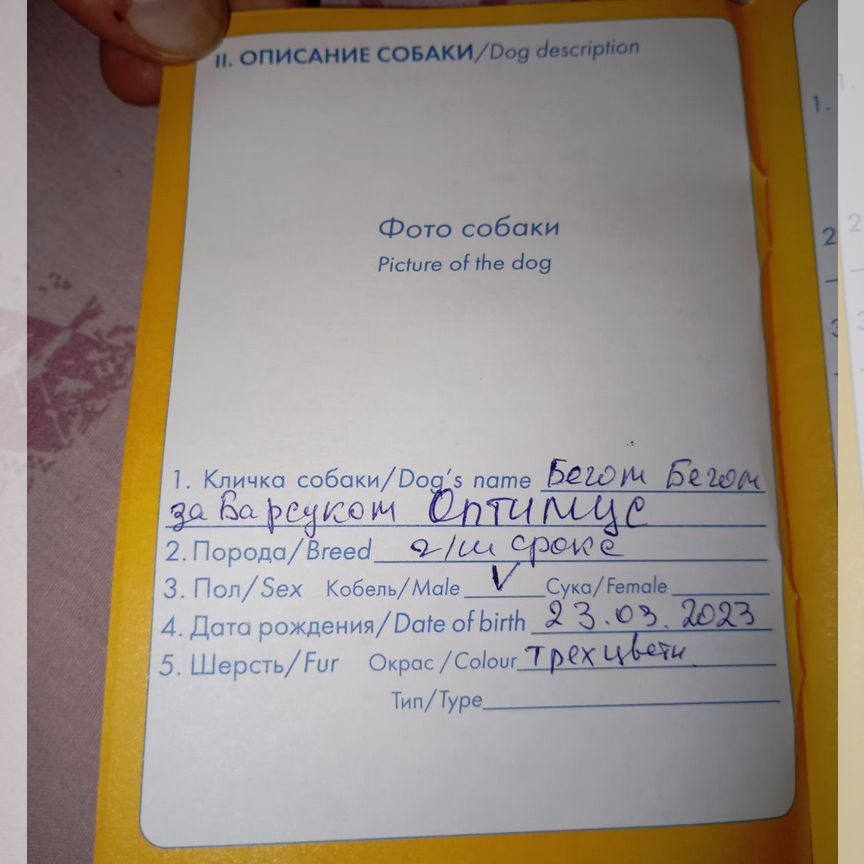 II. ОПИСАНИЕ СОБАКИ/Dog description
Фото собаки
Picture of the dog
1. Кличка собаки/Dog's name Бегом Бегом
за Барсуком Оптимус
2. Порода/Breed г/ш фокс
3. Пол/Sex Кобель/Male V Сука/Female
4. Дата рождения/Date of birth 23.03.2023
5. Шерсть/Fur Окрас/Colour трехцветн.
Тип/Type
1.
2
3